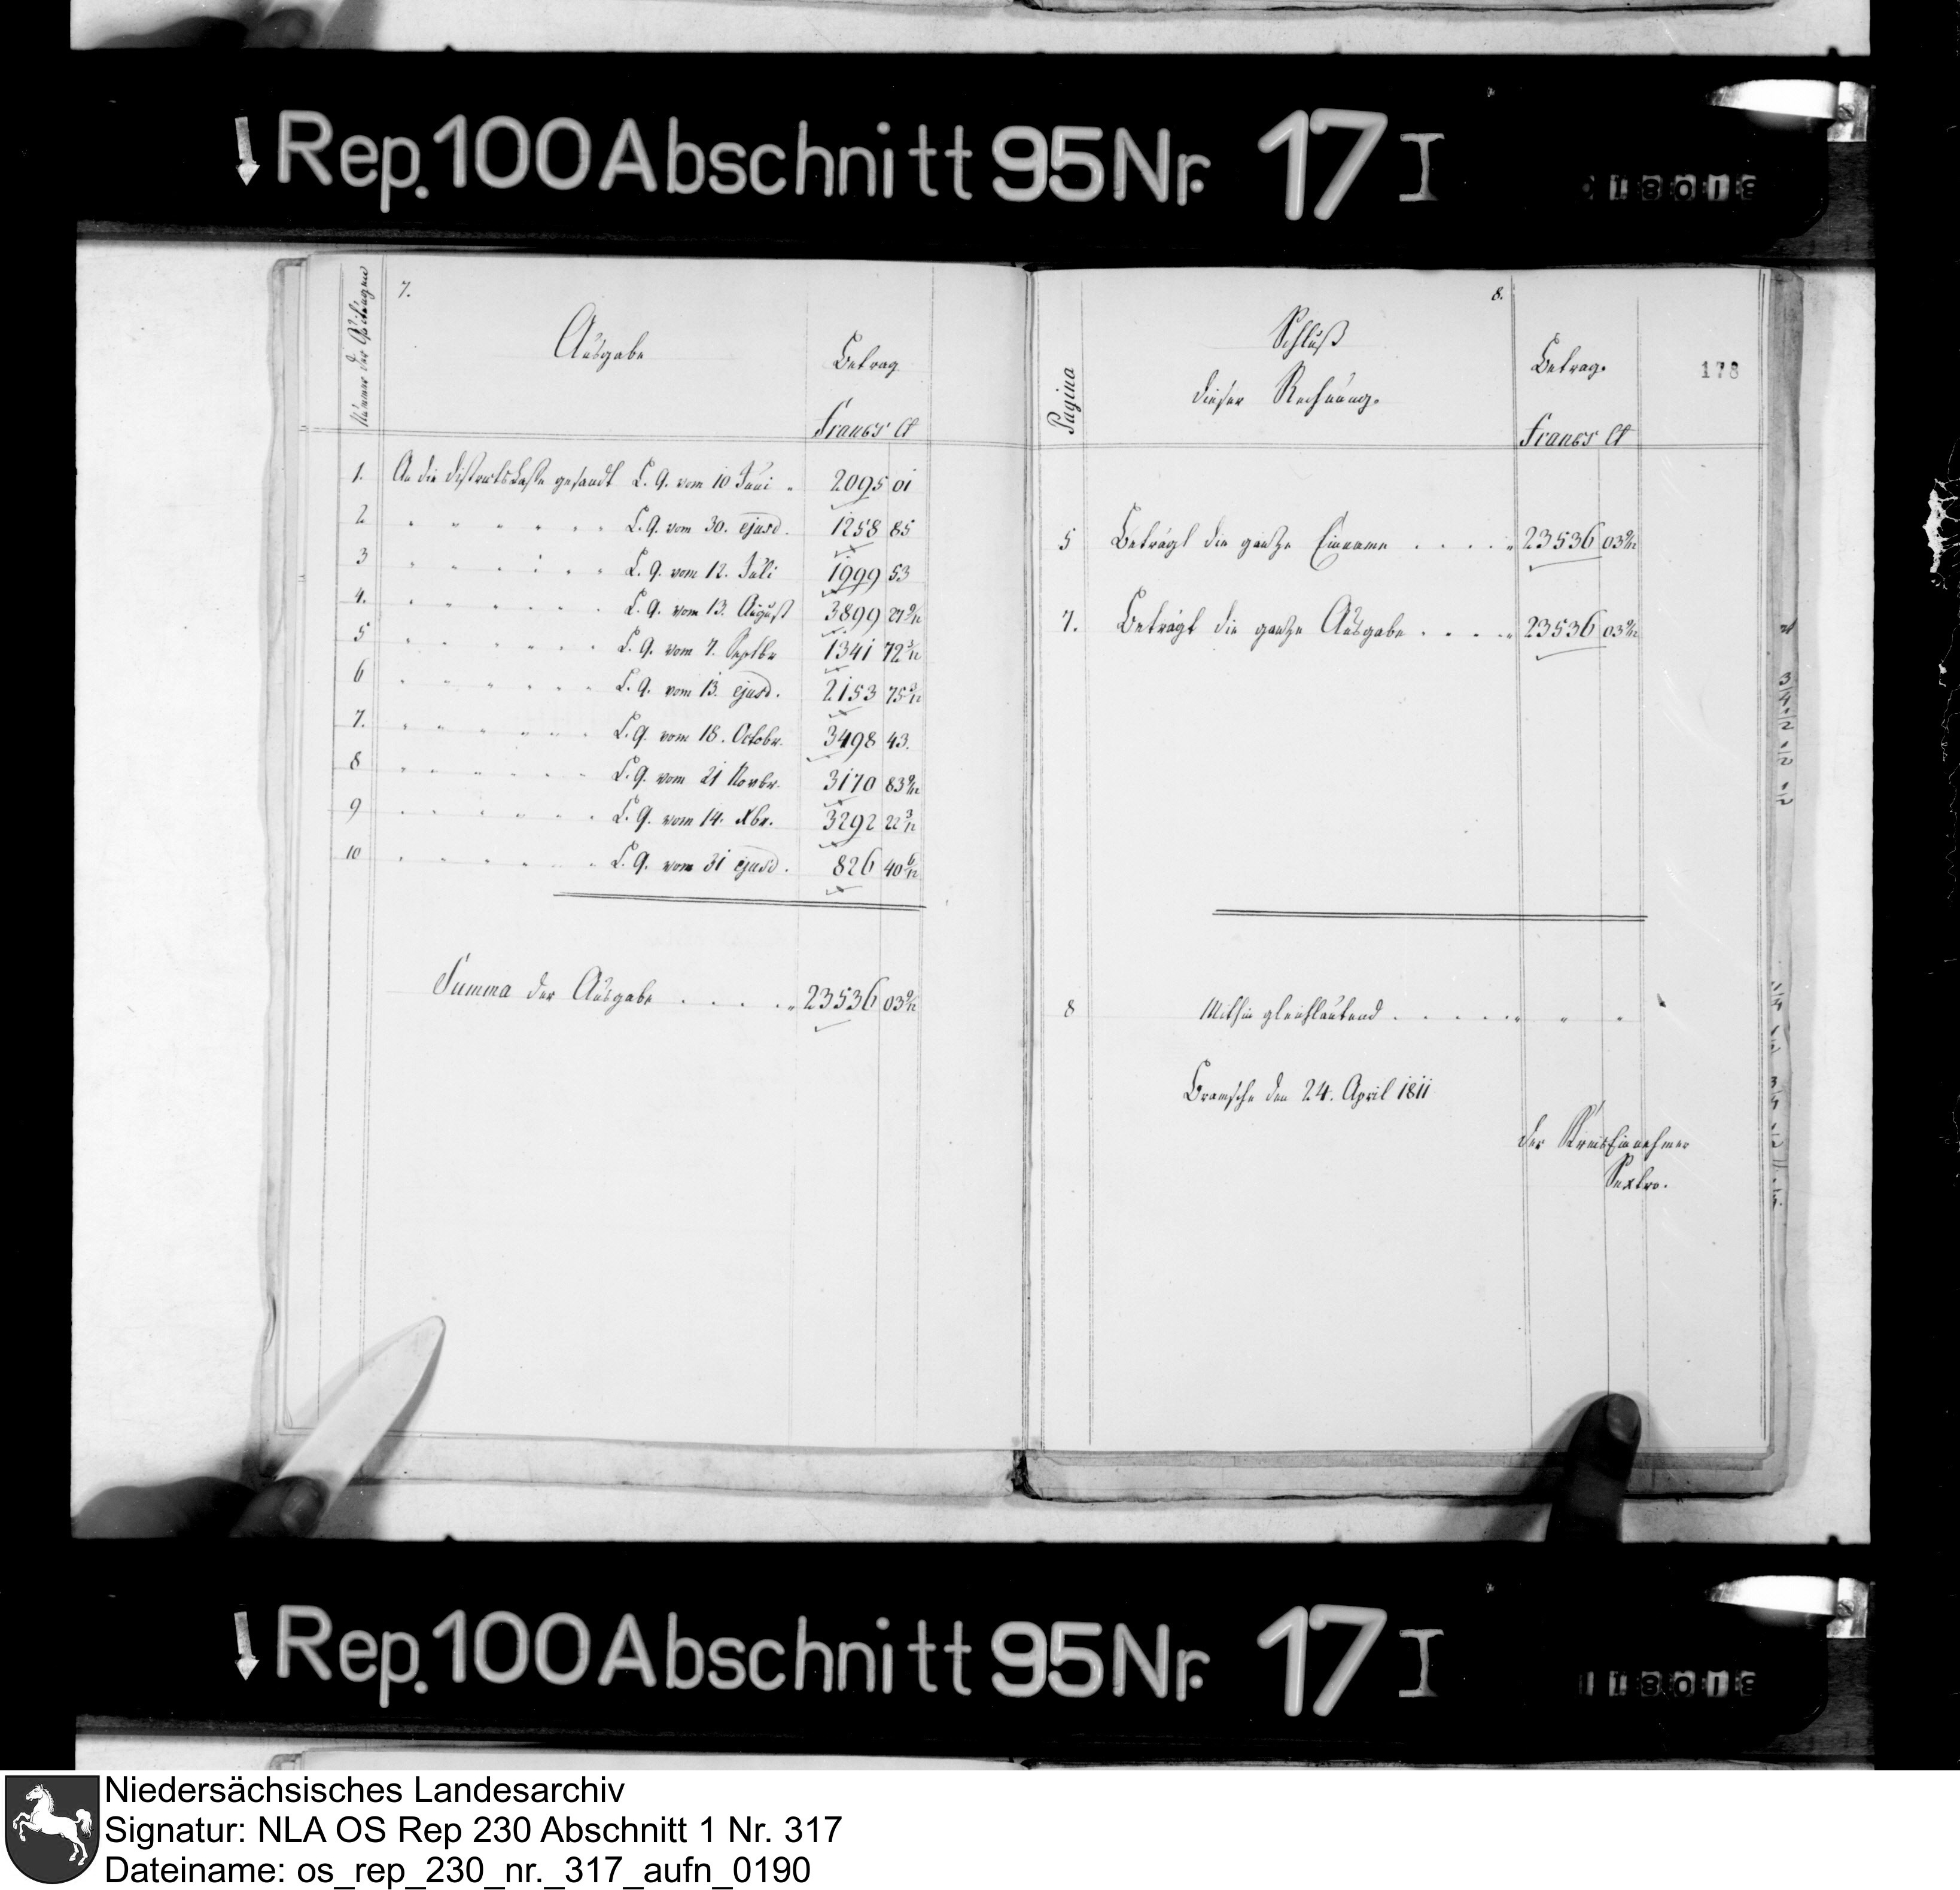 Rep. 100 Abschnitt 95 Nr. 17 I
Nummer der Quitungen
7.
Ausgabe
Betrag
Francs Ct
1. An die Districtscasse gesandt L. Q. vom 10 Juni 2095 01
2 " " " " " " L. Q. vom 30. ejusd. 1258 85
3 " " " " " " L. Q. vom 12. Juli 1999 53
4. " " " " " " L. Q. vom 13. August 3899 27 9/12
5 " " " " " " L. Q. vom 7. Septbr 1341 72 3/12
6 " " " " " " L. Q. vom 13. ejusd. 2153 75 3/12
7. " " " " " " L. Q. vom 18. Octobr. 3498 43.
8 " " " " " " L. Q. vom 21 Novbr. 3170 83 9/12
9 " " " " " " L. Q. vom 14. Xbr. 3292 22 3/12
10 " " " " " " L. Q. vom 31 ejusd. 826 40 6/12
Summa der Ausgabe . . . . . 23536 03 9/12
Pagina
8.
Schluß
dieser Rechnung.
Betrag.
Francs Ct
178
5 Beträgt die gantze Einname . . . . . 23536 03 9/12
7. Beträgt die gantze Ausgabe . . . . . 23536 03 9/12
8 Mithin gleichlautend . . . . . " " "
Bramsche den 24. April 1811
der KreisEinnehmer
Sextro.
Rep. 100 Abschnitt 95 Nr. 17 I
Niedersächsisches Landesarchiv
Signatur: NLA OS Rep 230 Abschnitt 1 Nr. 317
Dateiname: os_rep_230_nr._317_aufn_0190